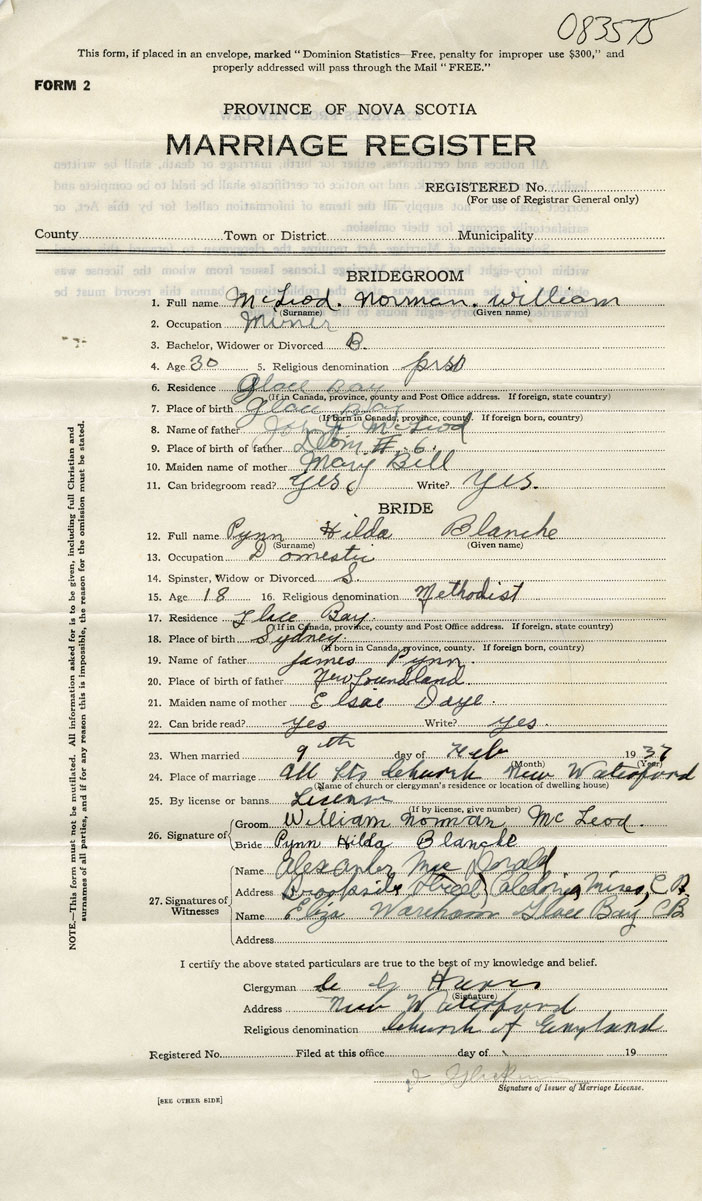 083575
This form, if placed in an envelope, marked "Dominion Statistics—Free, penalty for improper use $300," and
properly addressed will pass through the Mail "FREE."
FORM 2
PROVINCE OF NOVA SCOTIA
MARRIAGE REGISTER
REGISTERED No.
(For use of Registrar General only)
County Town or District Municipality
BRIDEGROOM
1. Full name McLeod. Norman. William
(Surname) (Given name)
2. Occupation Miner
3. Bachelor, Widower or Divorced B.
4. Age 30 5. Religious denomination
6. Residence Glace Bay
(If in Canada, province, county and Post Office address. If foreign, state country)
7. Place of birth Glace Bay
(If born in Canada, province, county. If foreign born, country)
8. Name of father John McLeod
9. Place of birth of father Dom. # 6.
10. Maiden name of mother Mary Bell
11. Can bridegroom read? Yes Write? Yes.
BRIDE
12. Full name Pynn Hilda Blanche
(Surname) (Given name)
13. Occupation Domestic
14. Spinster, Widow or Divorced S.
15. Age 18 16. Religious denomination Methodist
17. Residence Glace Bay.
(If in Canada, province, county and Post Office address. If foreign, state country)
18. Place of birth Sydney.
(If born in Canada, province, county. If foreign born, country)
19. Name of father James Pynn.
20. Place of birth of father Newfoundland.
21. Maiden name of mother Elsie Daye.
22. Can bride read? yes Write? yes.
23. When married 9th day of Feb 1937
(Month) (Year)
24. Place of marriage All Sts Church New Waterford
(Name of church or clergyman's residence or location of dwelling house)
25. By license or banns License
(If by license, give number)
26. Signature of
Groom William Norman McLeod.
Bride Pynn Hilda Blanche
27. Signatures of Witnesses
Name Alexander MacDonald
Address Brookside Street Caledonia Mines, C.B.
Name Eliza Wareham Glace Bay CB
Address
I certify the above stated particulars are true to the best of my knowledge and belief.
Clergyman
(Signature)
Address New Waterford
Religious denomination Church of England
Registered No. Filed at this office day of 19
Signature of Issuer of Marriage License.
[SEE OTHER SIDE]
NOTE.—This form must not be mutilated. All information asked for is to be given, including full Christian and
surnames of all parties, and if for any reason this is impossible, the reason for the omission must be stated.